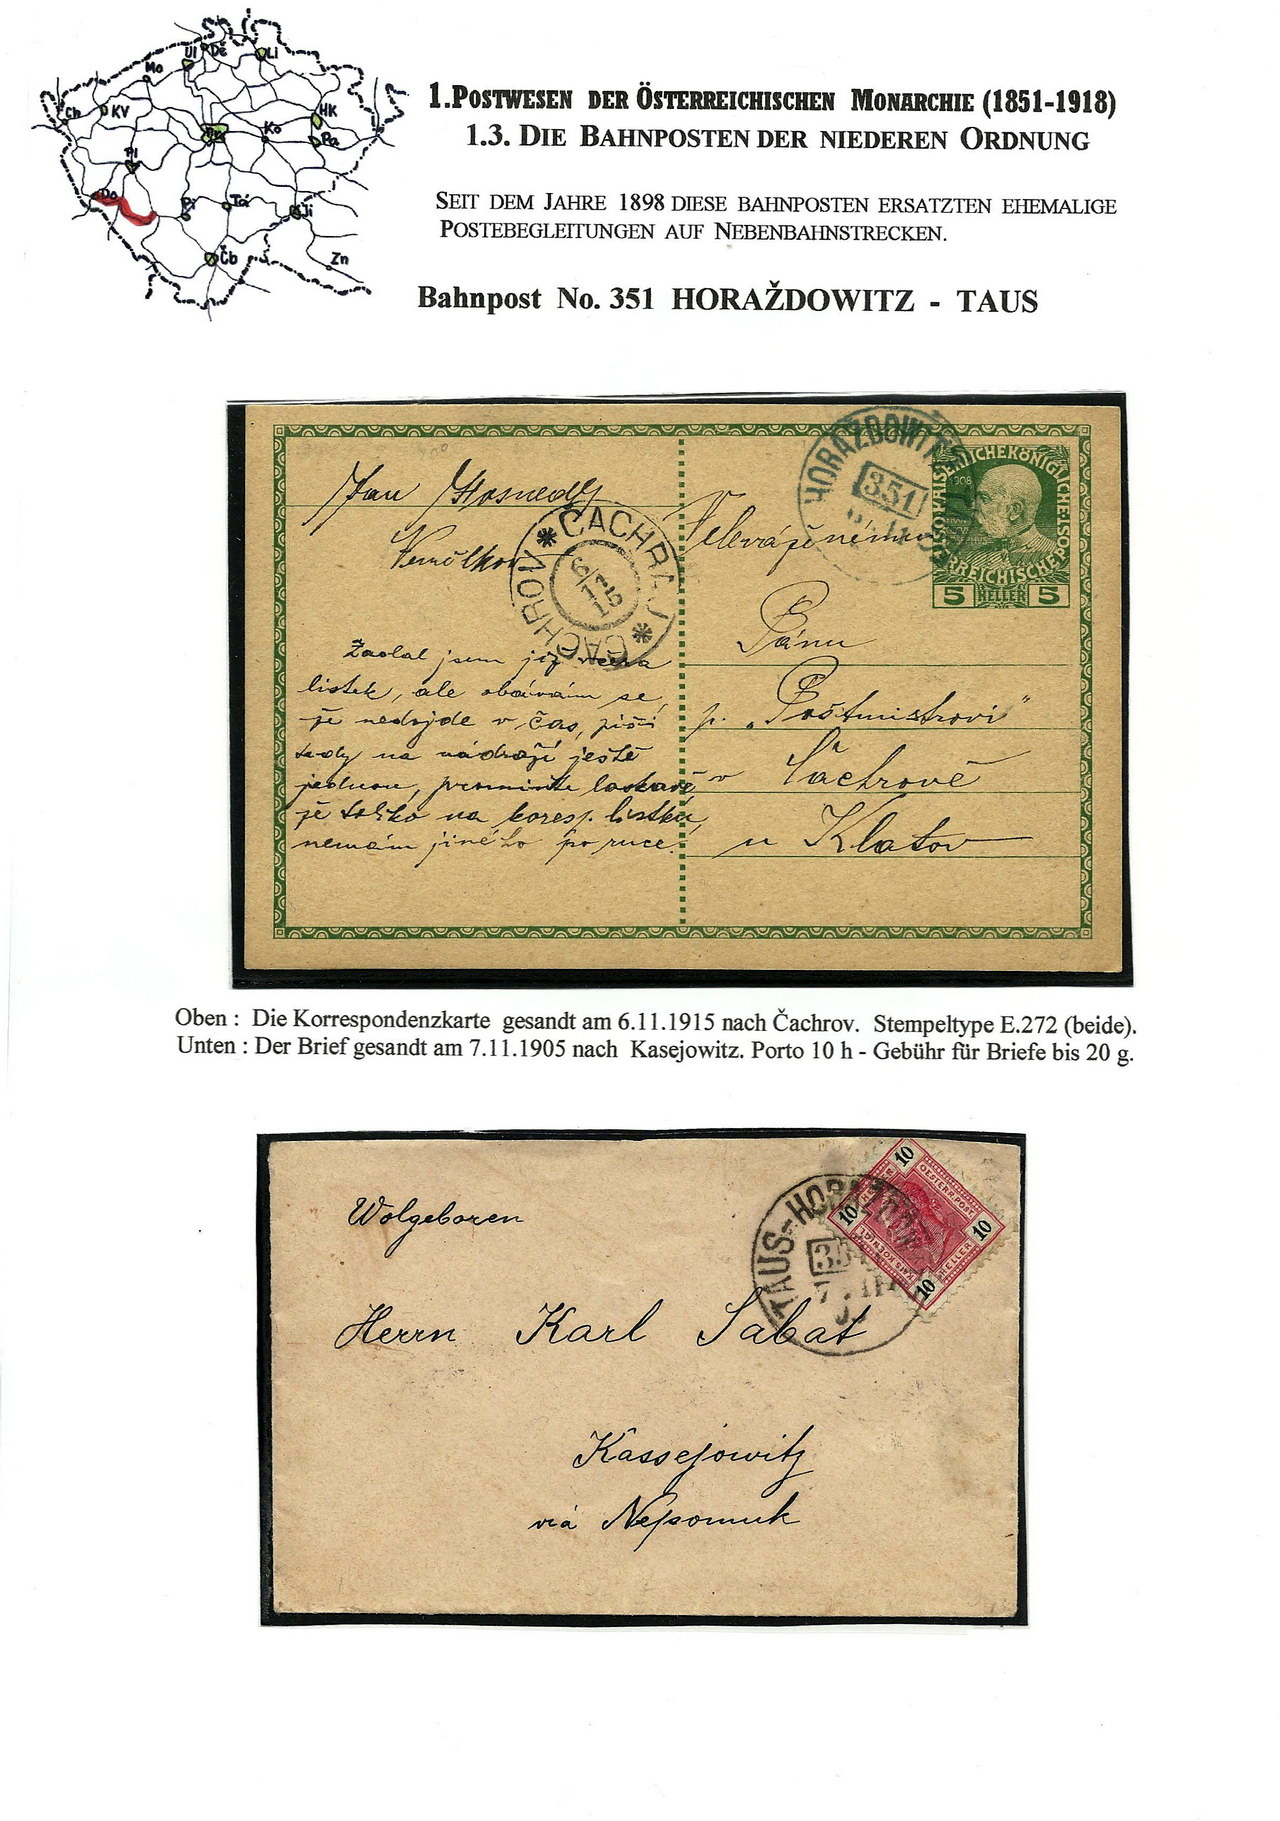 Ul Dě Li
Mo
Ch KV HK
Ko Pa
Pl
Do Pi Tá Ji
Čb Zn
1. POSTWESEN DER ÖSTERREICHISCHEN MONARCHIE (1851-1918)
1.3. DIE BAHNPOSTEN DER NIEDEREN ORDNUNG
SEIT DEM JAHRE 1898 DIESE BAHNPOSTEN ERSATZTEN EHEMALIGE
POSTEBEGLEITUNGEN AUF NEBENBAHNSTRECKEN.
Bahnpost No. 351 HORAŽDOWITZ - TAUS
HORAŽDOWITZ
351
KAISERLICHEKÖNIGLICHE
1908
ÖSTERREICHISCHE POST
5 HELLER 5
Jan
ČACHRAU * ČACHROV *
6/11 15
Veleváženému
Pánu
p. „Poštmistrovi"
v Čachrově
u Klatov
Žádal jsem již
lístek, ale obávám se,
že nedojde v čas, píši
tedy na nádraží ještě
jednou, promiňte laskavě
že toliko na koresp. lístku,
nemám jiného po ruce.
Oben : Die Korrespondenzkarte gesandt am 6.11.1915 nach Čachrov. Stempeltype E.272 (beide).
Unten : Der Brief gesandt am 7.11.1905 nach Kasejowitz. Porto 10 h - Gebühr für Briefe bis 20 g.
TAUS-HORAŽDOW
35
7
10 HELLER 10 OESTERR. POST.
10 KAIS. KOENIGL. 10 HELLER
Wolgeboren
Herrn Karl Sabat
Kassejowitz
via Nepomuk